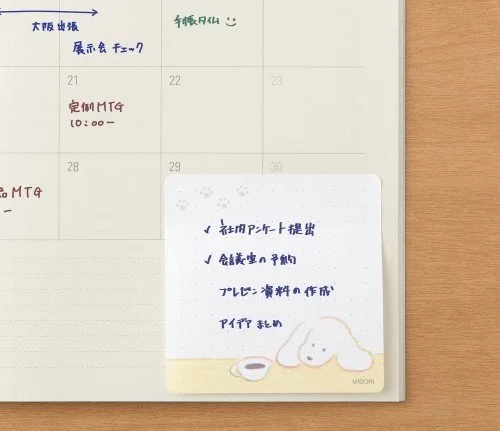 大阪出張
展示会 チェック
手帳タイム
21
22
23
定例MTG
10:00ー
28
29
30
品MTG
ー
✓ 社内アンケート提出
✓ 会議室の予約
プレゼン資料の作成
アイデアまとめ
MIDORI